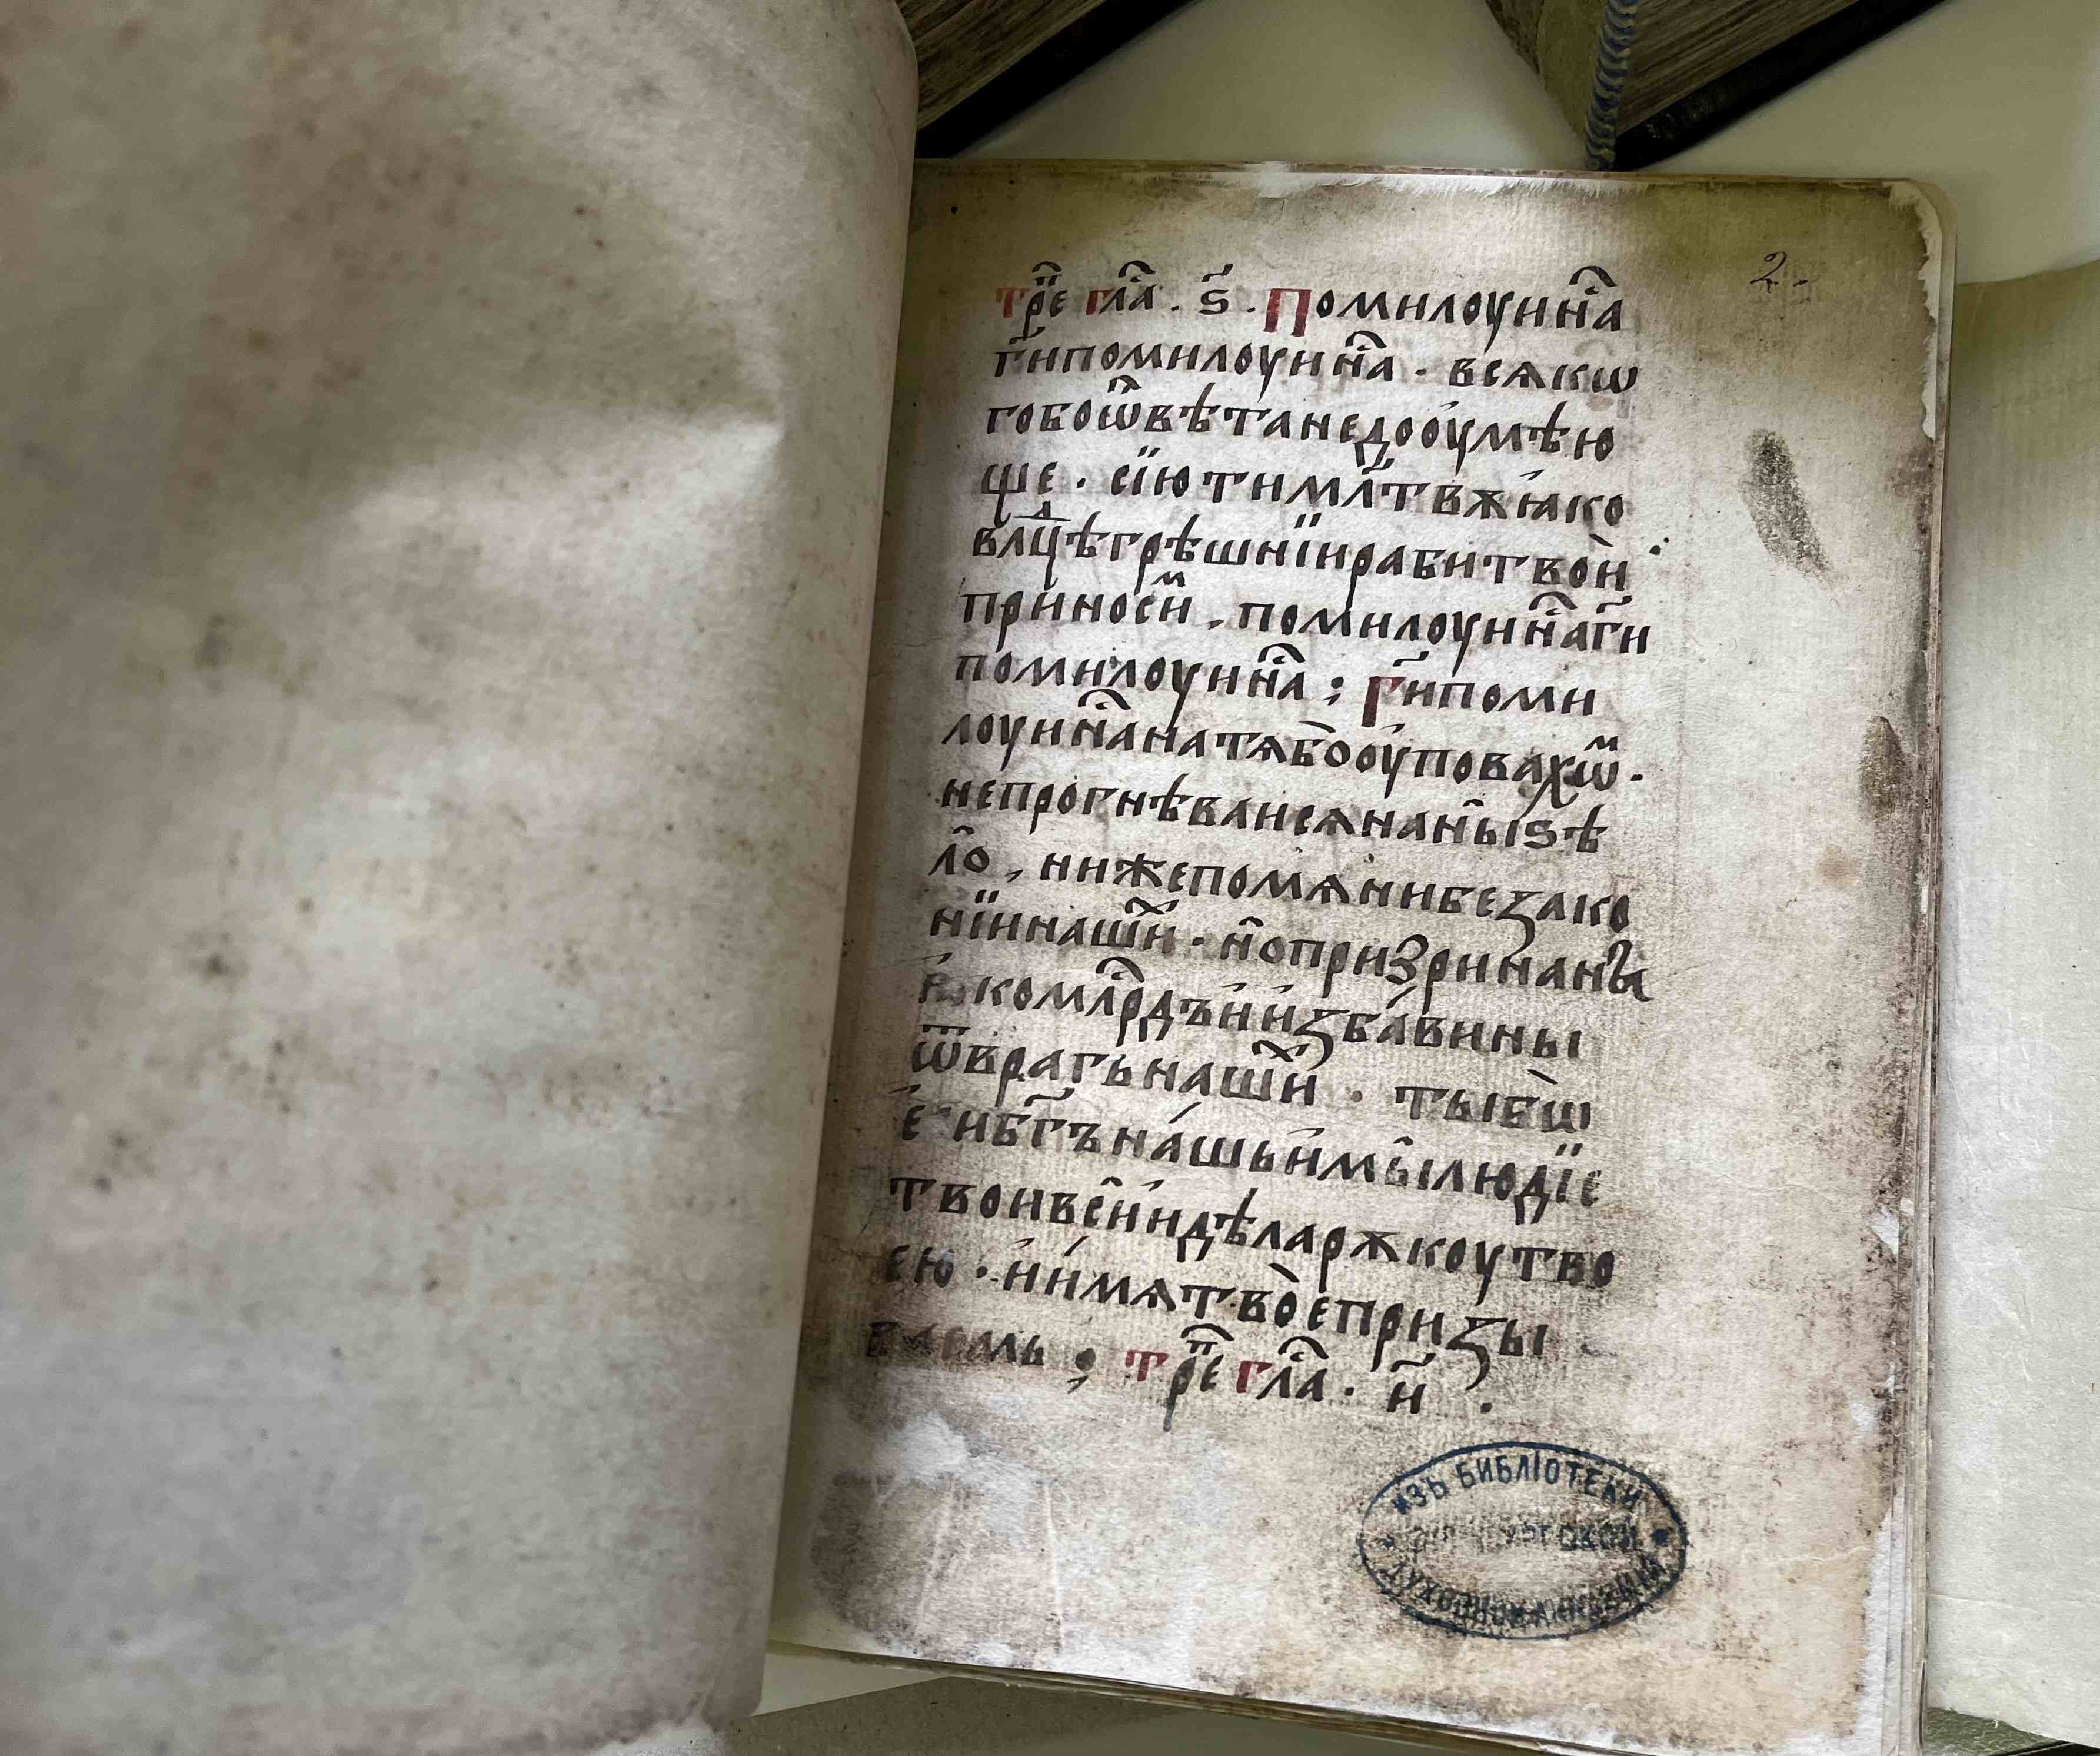 2.
трⷫ҇е глⷭ҇а . ѕ҃ . Помилоуи нⷭ҇а
г҃и помилоуи нⷭ҇а . всѧкѡ
го бо ѿвѣта недооумѣю
ще . сїю ти млт҃вѫ ꙗко
влⷣцѣ грѣшнїи раби твои
приносиⷨ . помилоуи нⷭ҇а г҃и
помилоуи нⷭ҇а ; Г҃и поми
лоуи нⷭ҇а на тѧ бо оуповахѡⷨ .
не прогнѣваи сѧ на ны ѕѣ
ло , ниже помѧни безако
нїи нашиⷯ . но призри на ны
ꙗко млⷭ҇рдъ и избави ны
ѿ врагь нашиⷯ . ты бѡ
еси бг҃ъ нашь и мы людїе
твои вси и дѣла рѫкоу тво
ею . и имѧ твое призы
ваемь ; трⷫ҇е глⷭ҇а . и҃ .
ИЗЪ БИБЛІОТЕКИ